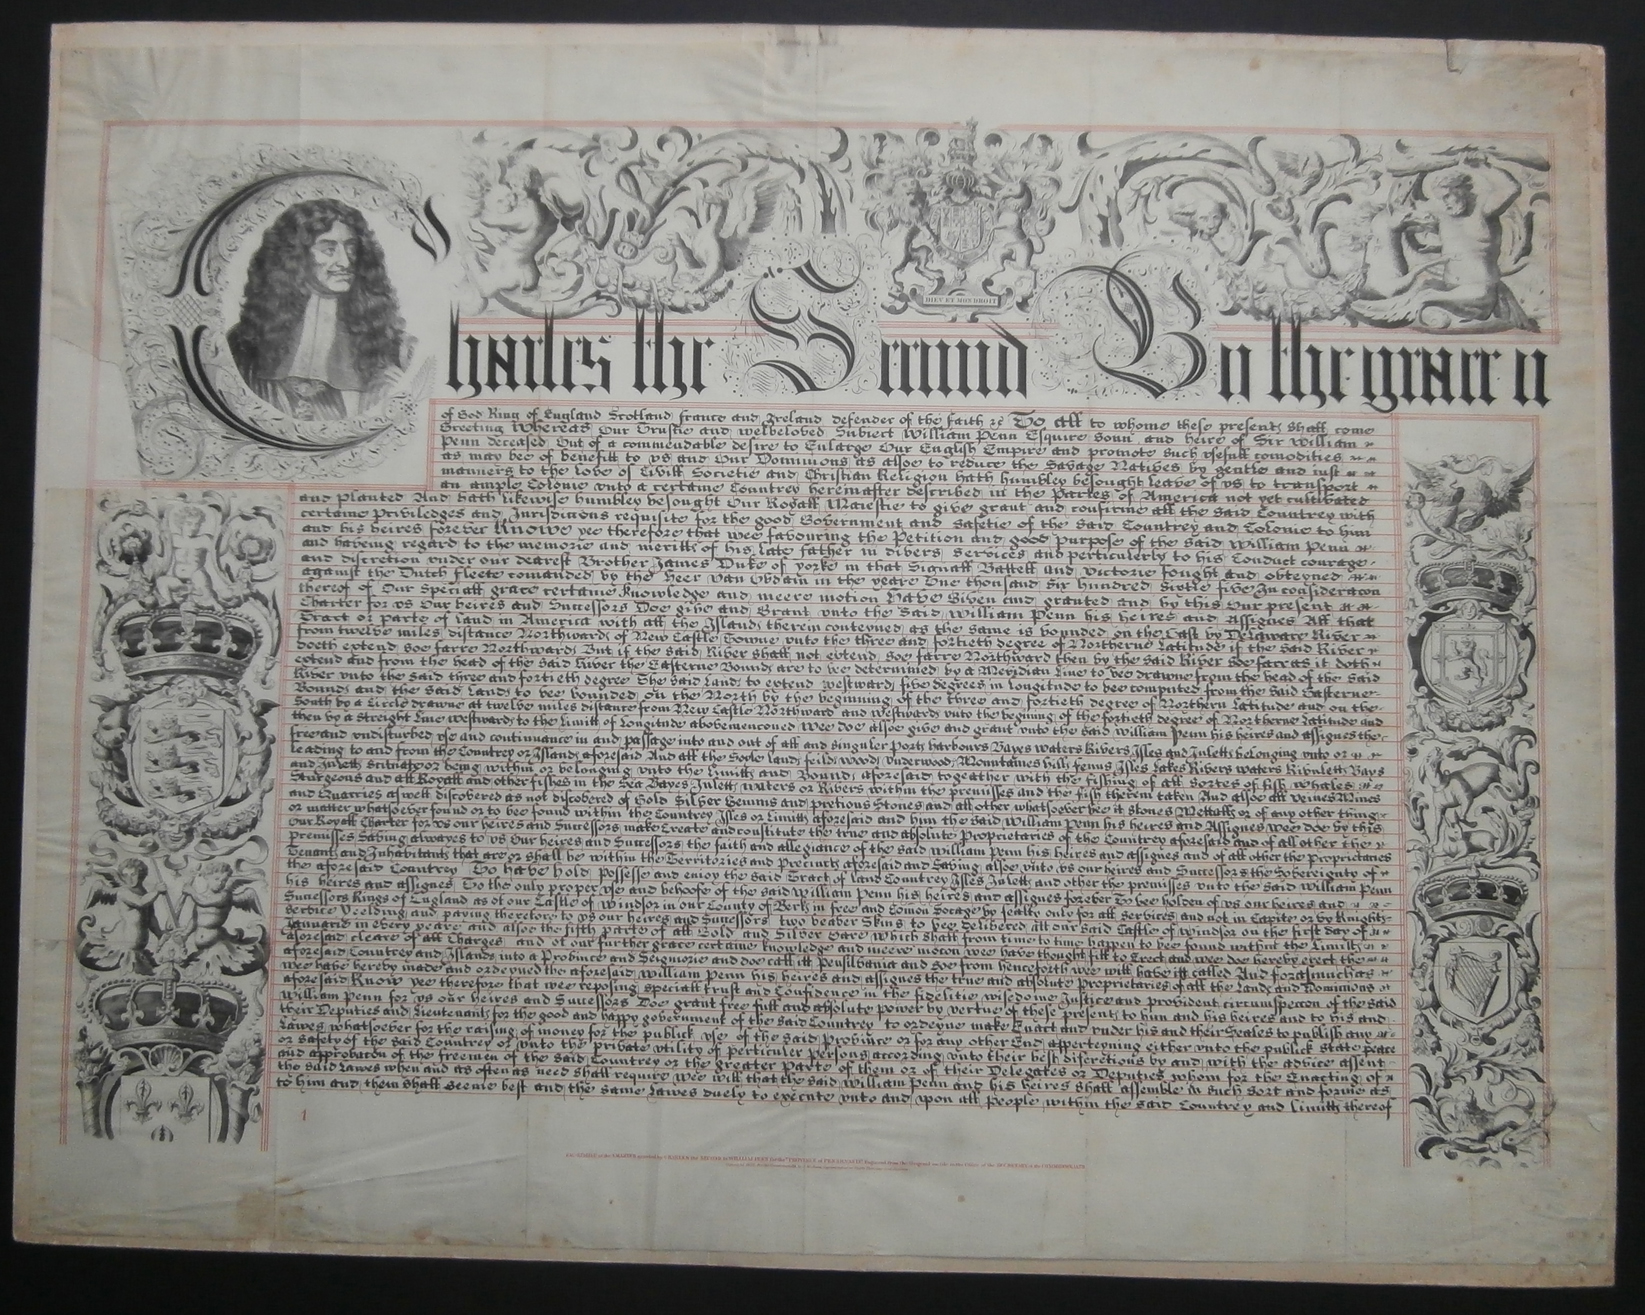 DIEV ET MON DROIT
Charles the Second By the grace
of God King of England Scotland france and Ireland defender of the faith &c To All to whome these present shall come
Greeting Whereas Our Trustie and welbeloved Subiect William Penn Esquire sonn and heire of Sir William
Penn deceased Out of a commendable desire to Enlarge Our English Empire and promote such usefull comodities
as may bee of benefitt to us and Our Dominions as alsoe to reduce the Savage Natives by gentle and iust
manners to the love of Civill Societie and Christian Religion hath humbley besought leave of us to transport
an ample Colonie unto a certaine Countrey hereinafter described in the Partes of America not yet cultivated
and planted And hath likewise humbley besought Our Royall Maiestie to give grant and confirme all the said Countrey with
certaine Priviledges and Jurisdiccons requisite for the good Government and safetie of the said Countrey and Colonie to him
and his heires forever Knowe yee therefore that wee favouring the Petition and good purpose of the said William Penn
and haveing regard to the memorie and meritts of his late father in divers services and perticulerly to his Conduct courage
and discretion under our dearest Brother James Duke of yorke in that Signall Battell and victorie fought and obteyned
against the Dutch fleete comanded by the Heer van Obdam in the yeare One thousand six hundred Sixtie five In consideracon
thereof of Our Speciall grace certaine knowledge and meere motion Have Given and granted and by this Our present
Charter for us Our heires and Successors Doe give and Grant unto the said William Penn his heires and Assignes All that
Tract or parte of land in America with all the Islands therein conteyned as the same is bounded on the East by Delaware River
from twelve miles distance Northwards of New Castle Towne unto the three and fortieth degree of Northerne Latitude if the said River
doeth extend soe farre Northwards But if the said River shall not extend soe farre Northward then by the said River soe farr as it doth
extend and from the head of the said River the Easterne Bounds are to bee determined by a Meridian Line to bee drawne from the head of the said
River unto the said three and fortieth degree The said Lands to extend westwards five degrees in longitude to bee computed from the said Easterne
Bounds and the said Lands to bee bounded on the North by the beginning of the three and fortieth degree of Northern Latitude and on the
South by a Circle drawne at twelve miles distance from New Castle Northward and Westwards unto the begining of the fortieth degree of Northerne Latitude and
then by a streight Line westwards to the Limitt of Longitude abovemenconed Wee doe alsoe give and grant unto the said William Penn his heires and assignes the
free and undisturbed use and continuance in and passage into and out of all and singuler Ports harbours Bayes waters Rivers Isles and Inletts belonging unto or
leading to and from the Countrey or Islands aforesaid And all the Soyle lands feilds woods underwoods Mountaines hills fenns Isles Lakes Rivers waters Rivuletts Bays
and Inletts scituate or being within or belonging unto the Limitts and Bounds aforesaid togeather with the fishing of all sortes of fish whales
Sturgeons and all Royall and other fishes in the Sea Bayes Inletts waters or Rivers within the premisses and the fish therein taken And alsoe all veines Mines
and Quarries aswell discovered as not discovered of Gold Silver Gemms and pretious Stones and all other whatsoever bee it Stones Mettalls or of any other thing
or matter whatsoever found or to bee found within the Countrey Isles or Limitts aforesaid and him the said William Penn his heires and Assignes Wee doe by this
Our Royall Charter for us our heires and Successors make Create and constitute the true and absolute Proprietaries of the Countrey aforesaid and of all other the
premisses Saving alwayes to us Our heires and Successors the faith and allegiance of the said William Penn his heires and assignes and of all other the Proprietaries
Tenants and Inhabitants that are or shall be within the Territories and Precincts aforesaid and Saving alsoe unto us our heires and Successors the Sovereignty of
the aforesaid Countrey To have hold possesse and enjoy the said Tract of land Countrey Isles Inletts and other the premisses unto the said William Penn
his heires and assignes To the only proper use and behoofe of the said William Penn his heires and assignes forever To bee holden of us our heires and
Successors Kings of England as of our Castle of Windsor in our County of Berks in free and Comon Socage by fealty only for all services and not in Capite or by Knights
service Yeelding and paying therefore to us our heires and Successors two Beaver Skins to bee delibered att our said Castle of Windsor on the first day of
Januarie in every yeare and alsoe the fifth parte of all Gold and Silver Oare which shall from time to time happen to bee found within the Limitts
aforesaid cleare of all Charges and of our further grace certaine knowledge and meere mocon wee have thought fitt to Erect and wee doe hereby erect the
aforesaid Countrey and Islands into a Province and Seigniorie and doe call itt Pensilvania and soe from henceforth wee will have itt called And forasmuch as
wee have hereby made and ordeyned the aforesaid William Penn his heires and assignes the true and absolute Proprietaries of all the Lands and Dominions
aforesaid Know yee therefore that wee reposing speciall trust and Confidence in the fidelitie wisedome Justice and provident circumspeccon of the said
William Penn for us our heires and Successors Doe grant free full and absolute power by vertue of these presents to him and his heires and to his and
their Deputies and Lieutenants for the good and happy government of the said Countrey to ordeyne make Enact and under his and their Seales to publish any
Lawes whatsoever for the raising of money for the publick use of the said Province or for any other End apperteyning either unto the publick state peace
or safety of the said Countrey or unto the private utility of perticuler persons according unto their best discretions by and with the advice assent
and approbacon of the freemen of the said Countrey or the greater parte of them or of their Delegates or Deputies whom for the Enacting of
the said Lawes when and as often as need shall require Wee will that the said William Penn and his heires shall assemble in such sort and forme as
to him and them shall seeme best and the same Lawes duely to execute unto and upon all People within the said Countrey and Limitts thereof
1